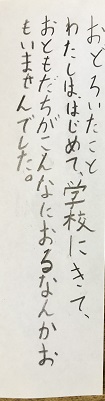 おどろいたこと
わたしは、はじめて、学校にきて、
おともだちがこんなにおるなんかお
もいませんでした。